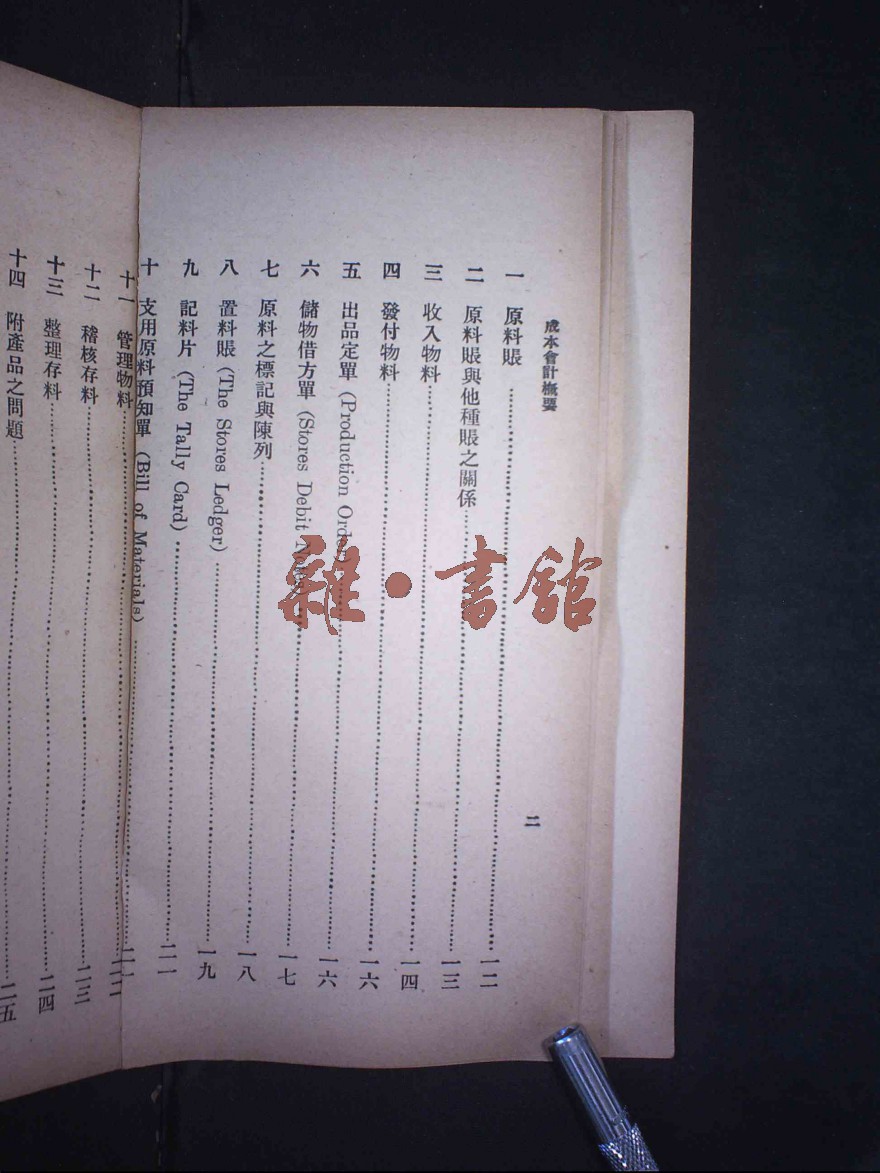 成本會計概要
二
一 原料賬……一二
二 原料賬與他種賬之關係……一三
三 收入物料……一四
四 發付物料……一六
五 出品定單 (Production Order)……一六
六 儲物借方單 (Stores Debit Note)……一七
七 原料之標記與陳列……一八
八 置料賬 (The Stores Ledger)……一九
九 記料片 (The Tally Card)……二一
十 支用原料預知單 (Bill of Materials)……二一
十一 管理物料……二二
十二 稽核存料……二三
十三 整理存料……二四
十四 附產品之問題……二五
雜·書館